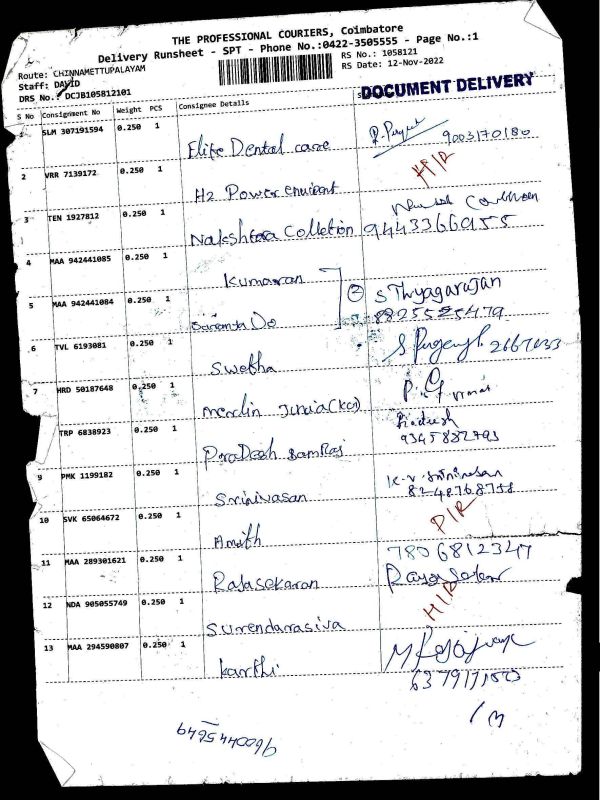 THE PROFESSIONAL COURIERS, Coimbatore
Delivery Runsheet - SPT - Phone No.:0422-3505555 - Page No.:1
Route: CHINNAMETTUPALAYAM
RS No.: 1058121
Staff: DAVID
RS Date: 12-Nov-2022
DRS No.: DCJB105812101
DOCUMENT DELIVERY
S No Consignment No Weight PCS Consignee Details
SLM 307191594 0.250 1 Elite Dental care 9003170180
2 VRR 7139172 0.250 1 H2 Power HIR
3 TEN 1927812 0.250 1 Nakshtraa Colletion 9443366955
4 MAA 942441085 0.250 1 Kumaran
5 MAA 942441084 0.250 1 Do 2 S Thyagarajan
8825525479
6 TVL 6193081 0.250 1 Swetha 2667033
7 HRD 50187648 0.250 1 Merdlin
TRP 6838923 0.250 1 Pradeesh Samraj
9345882793
9 PMK 1199182 0.250 1 Srinivasan K.V. Srinivasan
8248768758
10 SVK 65064672 0.250 1 Amith DIR
11 MAA 289301621 0.250 1 Rajasekaran 7806812347
12 NDA 905055749 0.250 1 Surendarasiva HIR
13 MAA 294590807 0.250 1 Karthi
9600445649